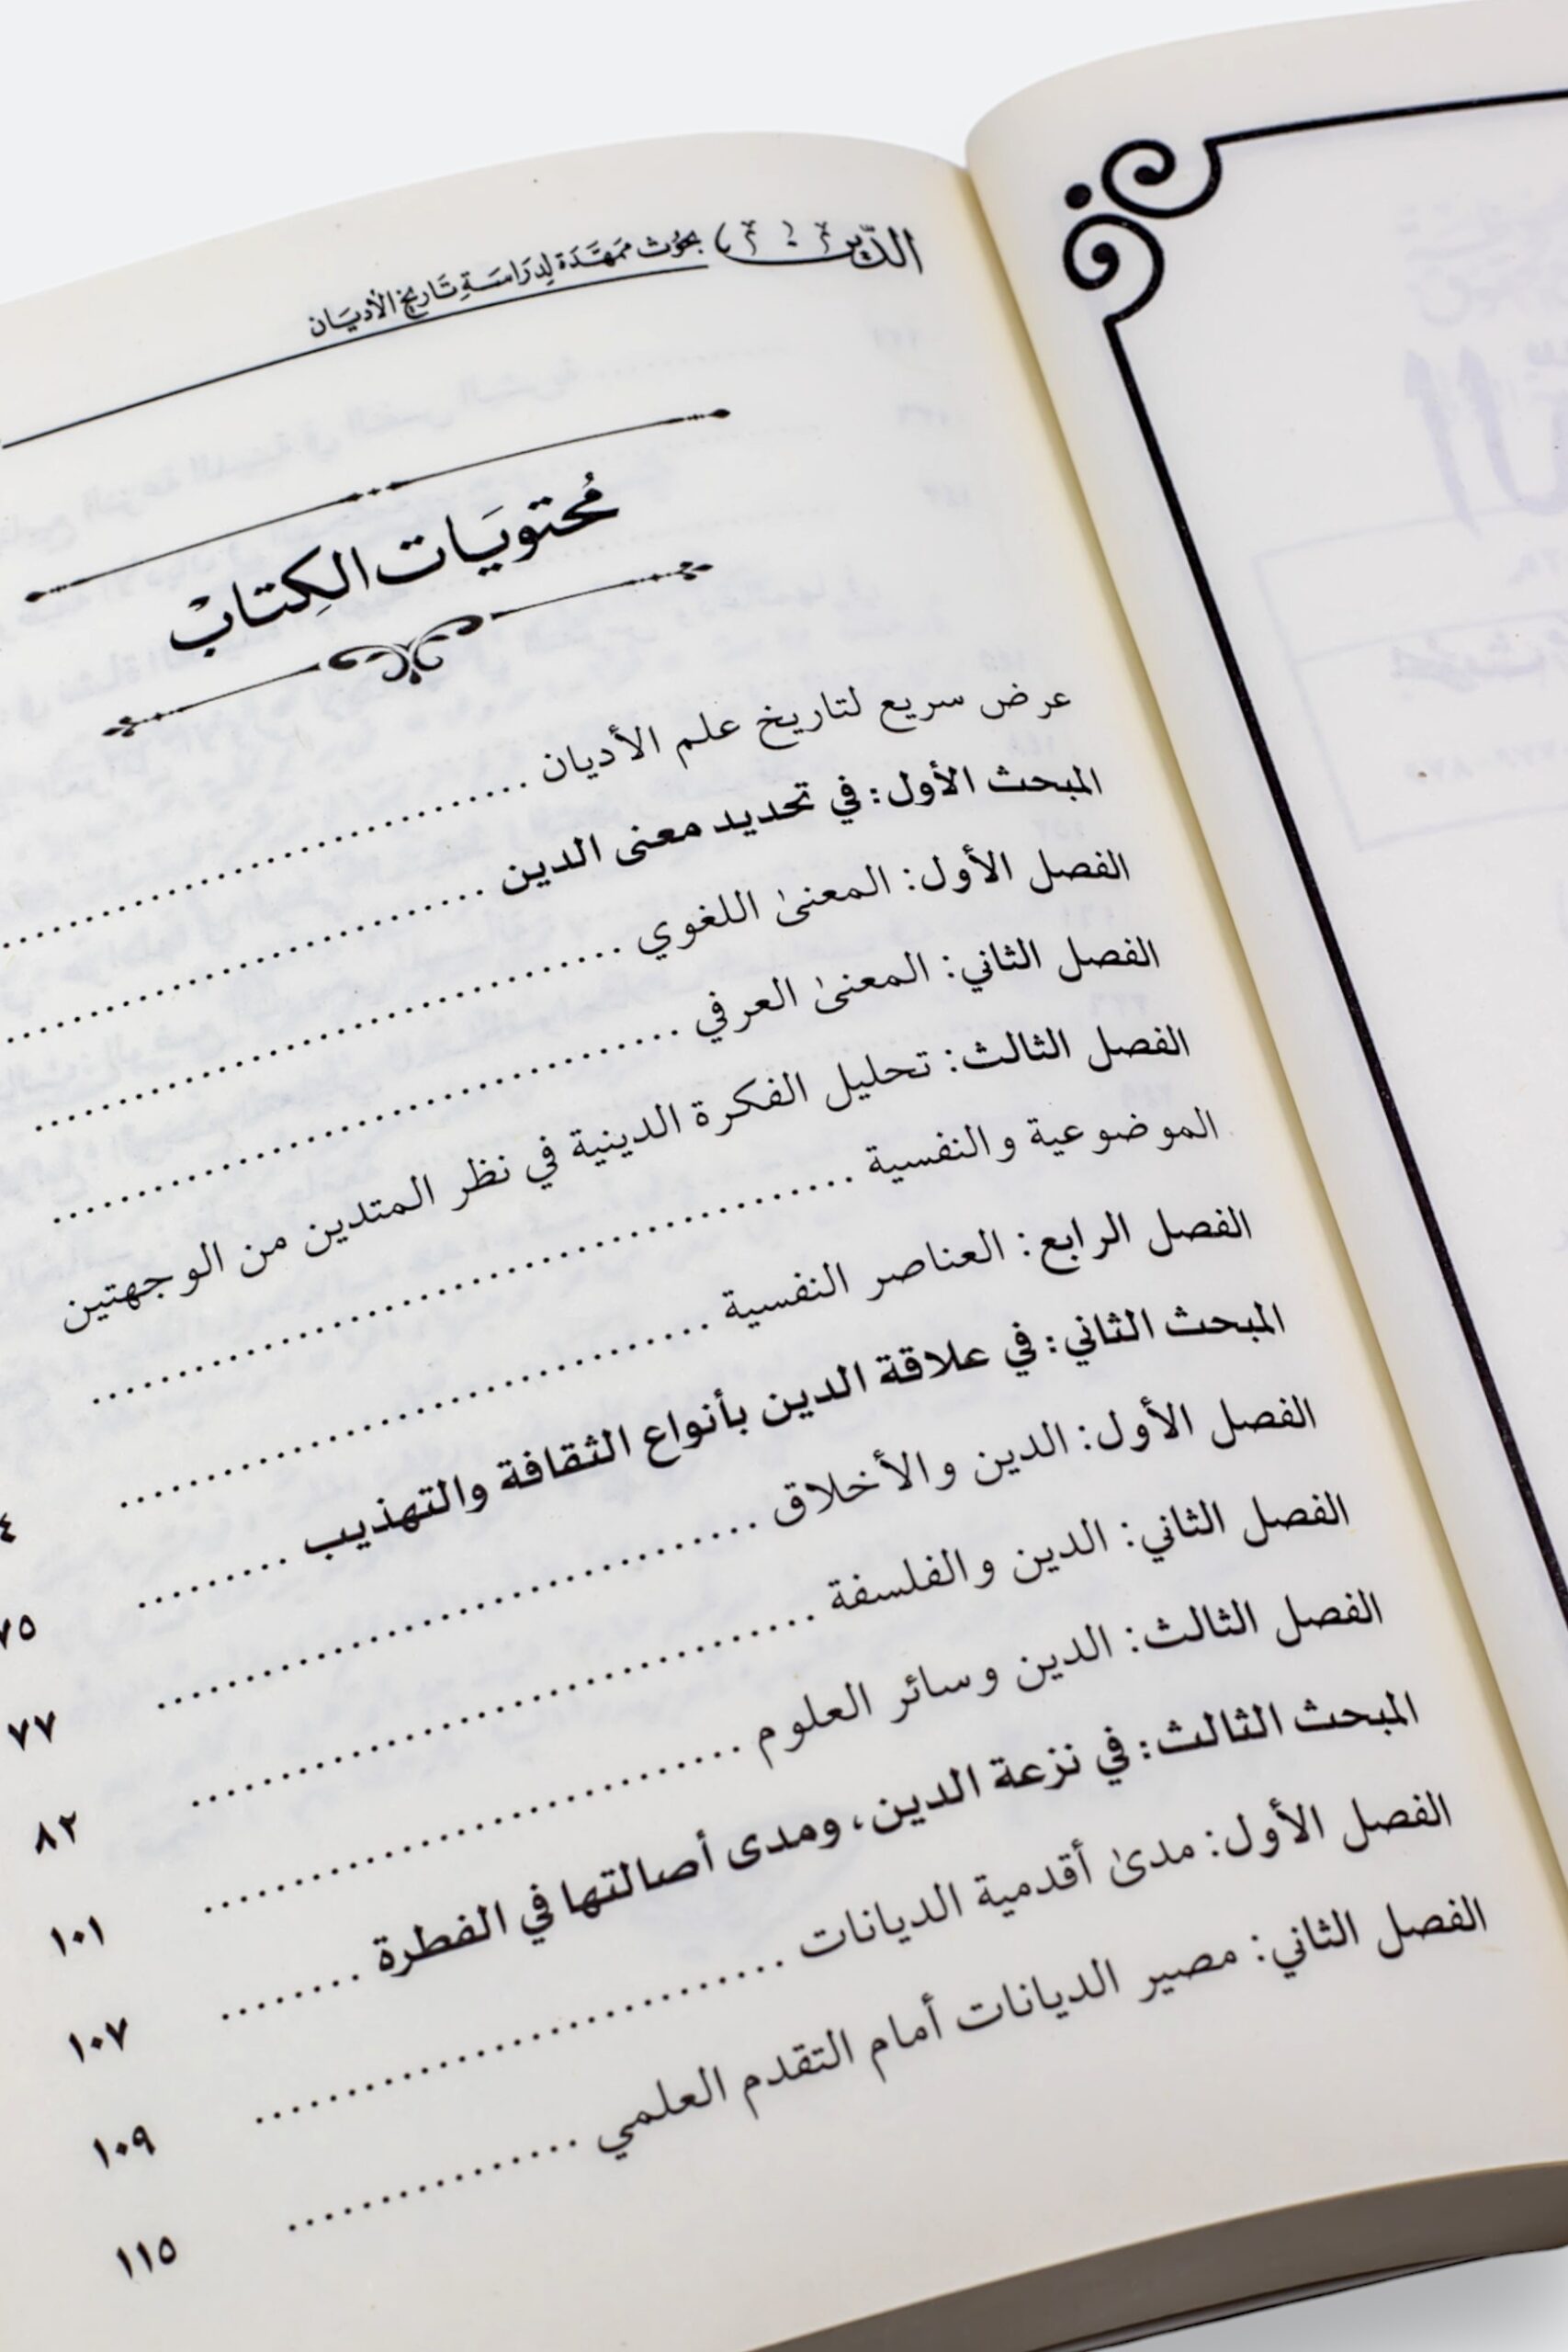 الدّين بحُوث ممَهَّدَة لِدرَاسَةِ تَاريخ الأديَان
مُحتويَات الكِتابْ
عرض سريع لتاريخ علم الأديان
المبحث الأول: في تحديد معنى الدين
الفصل الأول: المعنىٰ اللغوي
الفصل الثاني: المعنىٰ العرفي
الفصل الثالث: تحليل الفكرة الدينية في نظر المتدين من الوجهتين
الموضوعية والنفسية
الفصل الرابع: العناصر النفسية
المبحث الثاني: في علاقة الدين بأنواع الثقافة والتهذيب ٧٥
الفصل الأول: الدين والأخلاق ٧٧
الفصل الثاني: الدين والفلسفة ٨٢
الفصل الثالث: الدين وسائر العلوم ١٠١
المبحث الثالث: في نزعة الدين، ومدى أصالتها في الفطرة ١٠٧
الفصل الأول: مدىٰ أقدمية الديانات ١٠٩
الفصل الثاني: مصير الديانات أمام التقدم العلمي ١١٥